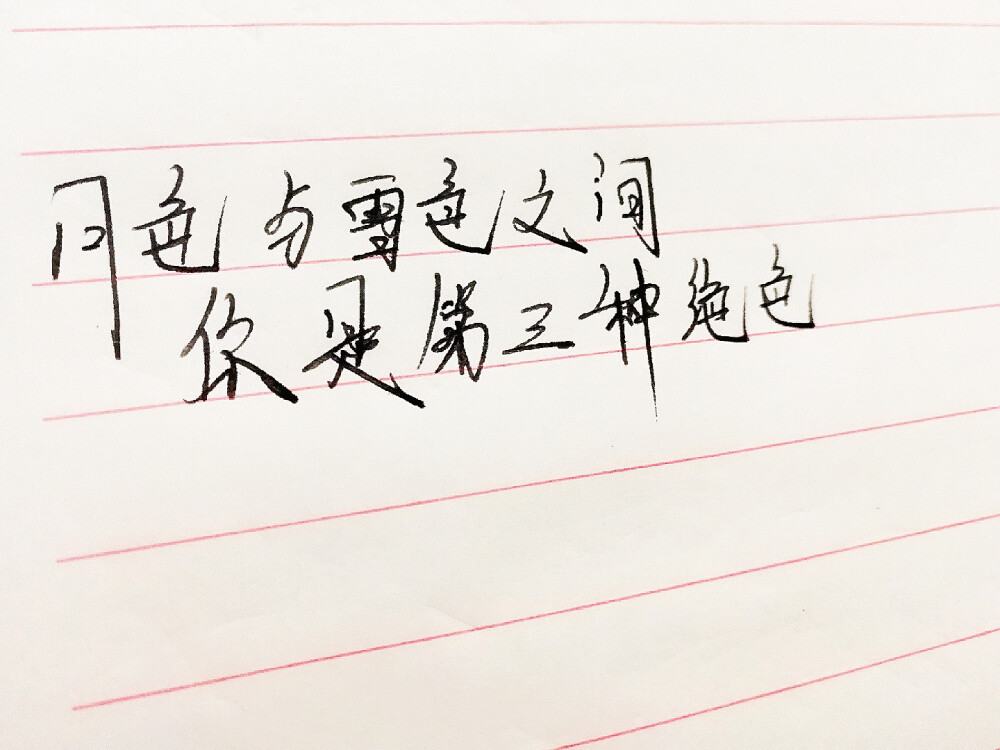 月色与雪色之间
你是第三种绝色